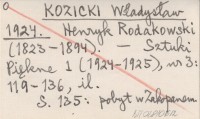 KOZICKI Władysław
1924. Henryk Rodakowski
(1823-1894). — Sztuki
Piękne 1 (1924-1925), nr 3:
119-136, il.
S. 135: pobyt w Zakopanem